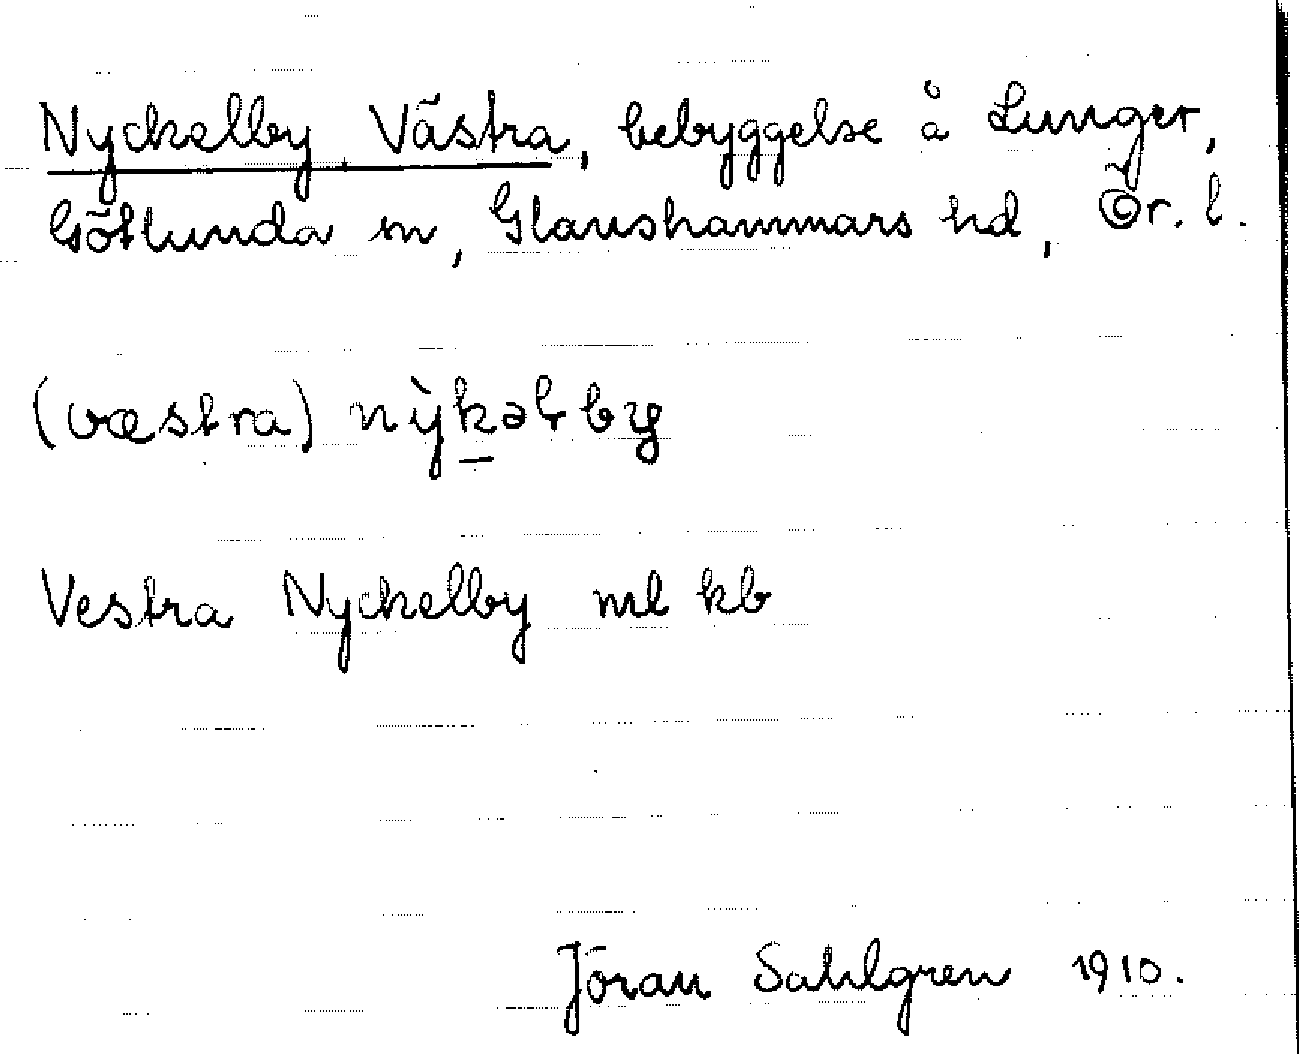 Nyckelby Västra, bebyggelse å Lunger,
Götlunda sn, Glanshammars hd, Ör. l.
(væstra) nỳkəlby
Vestra Nyckelby ml kb
Jöran Sahlgren 1910.